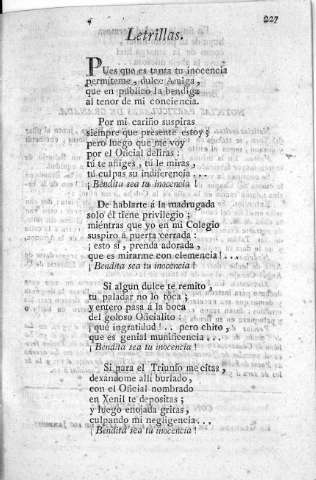 227
Letrillas.
PUes que es tanta tu inocencia
permiteme, dulce Amiga,
que en público la bendiga
al tenor de mi conciencia.
Por mi cariño suspiras
siempre que presente estoy;
pero luego que me voy
por el Oficial deliras:
tú te afliges, tú le miras,
tú culpas su indiferencia...
¡Bendita sea tu inocencia!
De hablarte á la madrugada
solo él tiene privilegio;
mientras que yo en mi Colegio
suspiro á puerta cerrada:
¡esto sí, prenda adorada,
que es mirarme con clemencia!...
¡Bendita sea tu inocencia!
Si algun dulce te remito,
tu paladar no lo toca;
y entero pasa á la boca
del goloso Oficialito:
¡qué ingratitud!.. pero chito,
que es genial munificencia...
¡Bendita sea tu inocencia!
Si para el Triunfo me citas,
dexandome alli burlado,
con el Oficial nombrado
en Xenil te depositas;
y luego enojada gritas,
culpando mi negligencia...
¡Bendita sea tu inocencia!